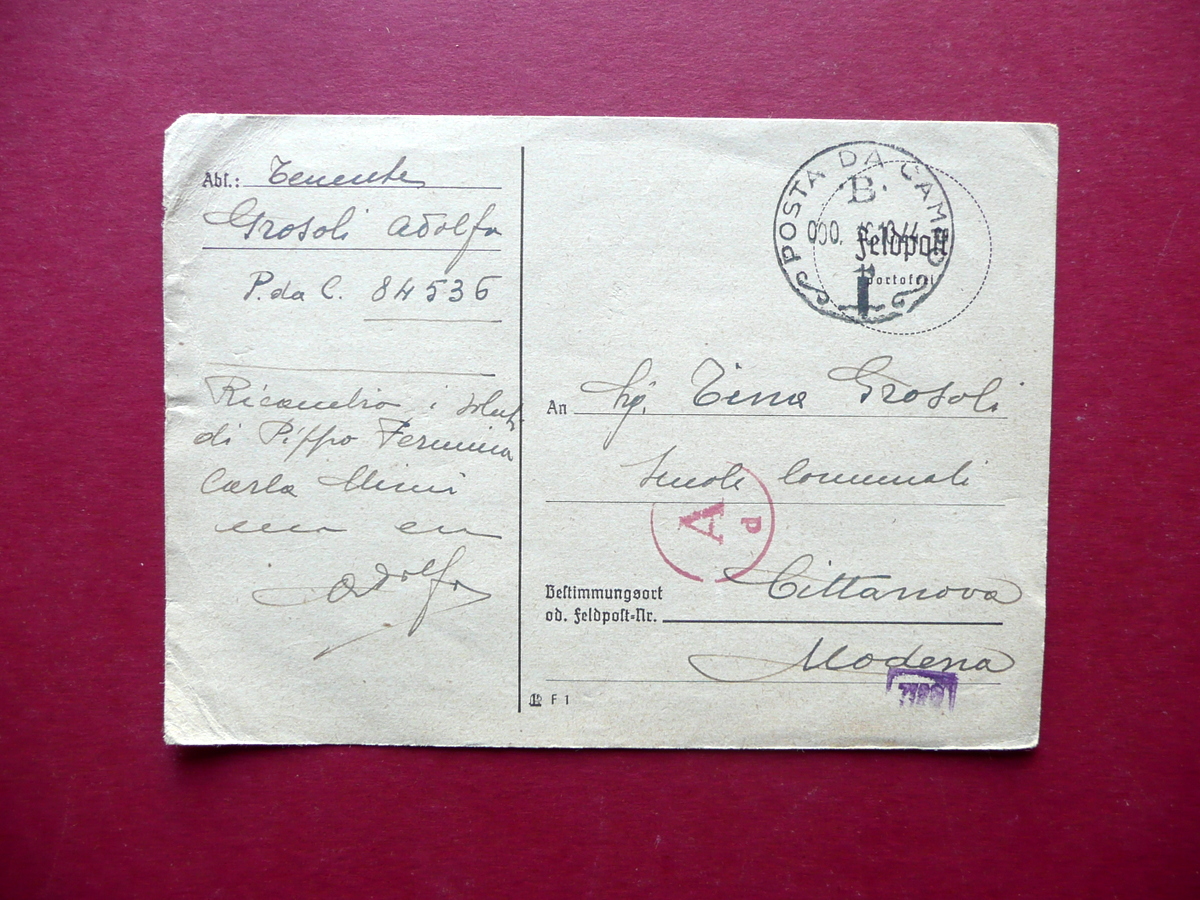 Abs.: Tenente
Grosoli Adolfo
P. da C. 84536
Ricambio i saluti
di Pippo Fermina
Carla Mimi
Adolfo
POSTA DA CAMPO
B.
Feldpost
Portofrei
An Sig. Tina Grosoli
Scuole Comunali
A
d
Bestimmungsort
od. Feldpost-Nr. Cittanova
Modena
F 1